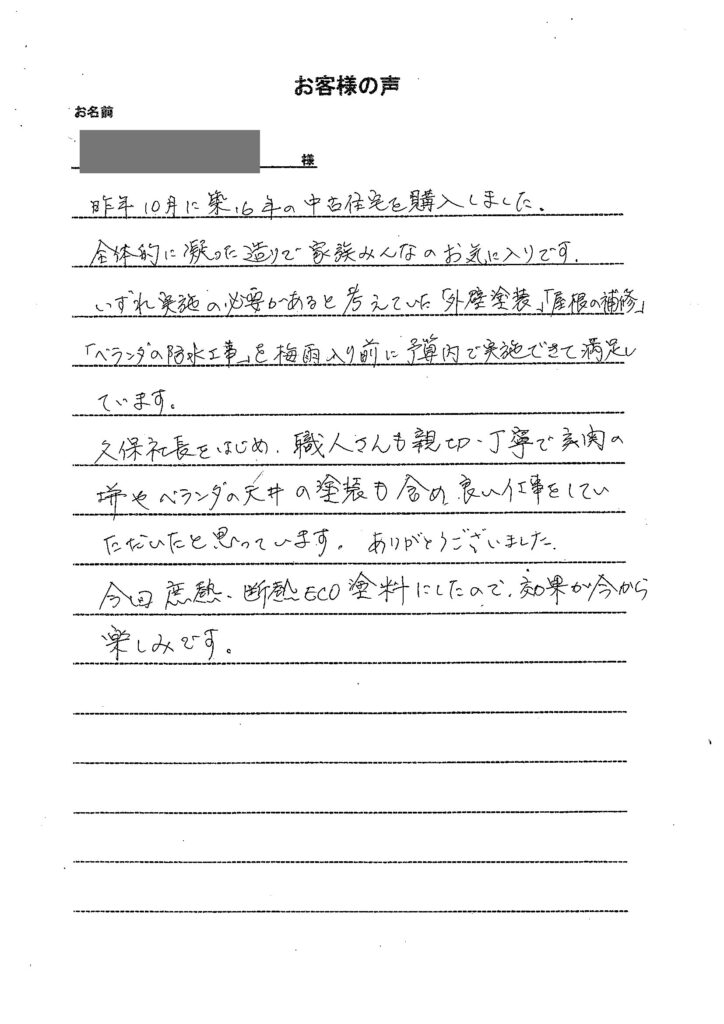 お客様の声
お名前
様
昨年10月に築16年の中古住宅を購入しました.
全体的に凝った造りで家族みんなのお気に入りです.
いずれ実施の必要があると考えていた「外壁塗装」「屋根の補修」
「ベランダの防水工事」を梅雨入り前に予算内で実施できて満足し
ています。
久保社長をはじめ、職人さんも親切・丁寧で玄関の
塀やベランダの天井の塗装も含め良い仕事をしてい
ただいたと思っています。ありがとうございました.
今回遮熱、断熱ECO塗料にしたので、効果が今から
楽しみです。